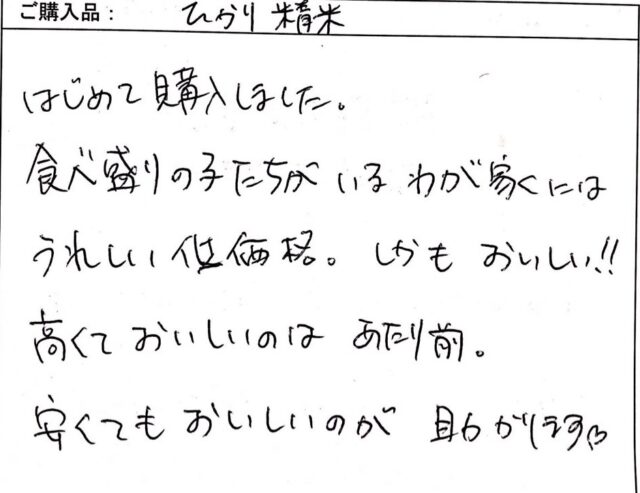 ご購入品： ひかり 精米
はじめて購入しました。
食べ盛りの子たちが いる わが家には
うれしい 低価格。 しかも おいしい!!
高くて おいしいのは あたり前。
安くても おいしいのが 助かります♡